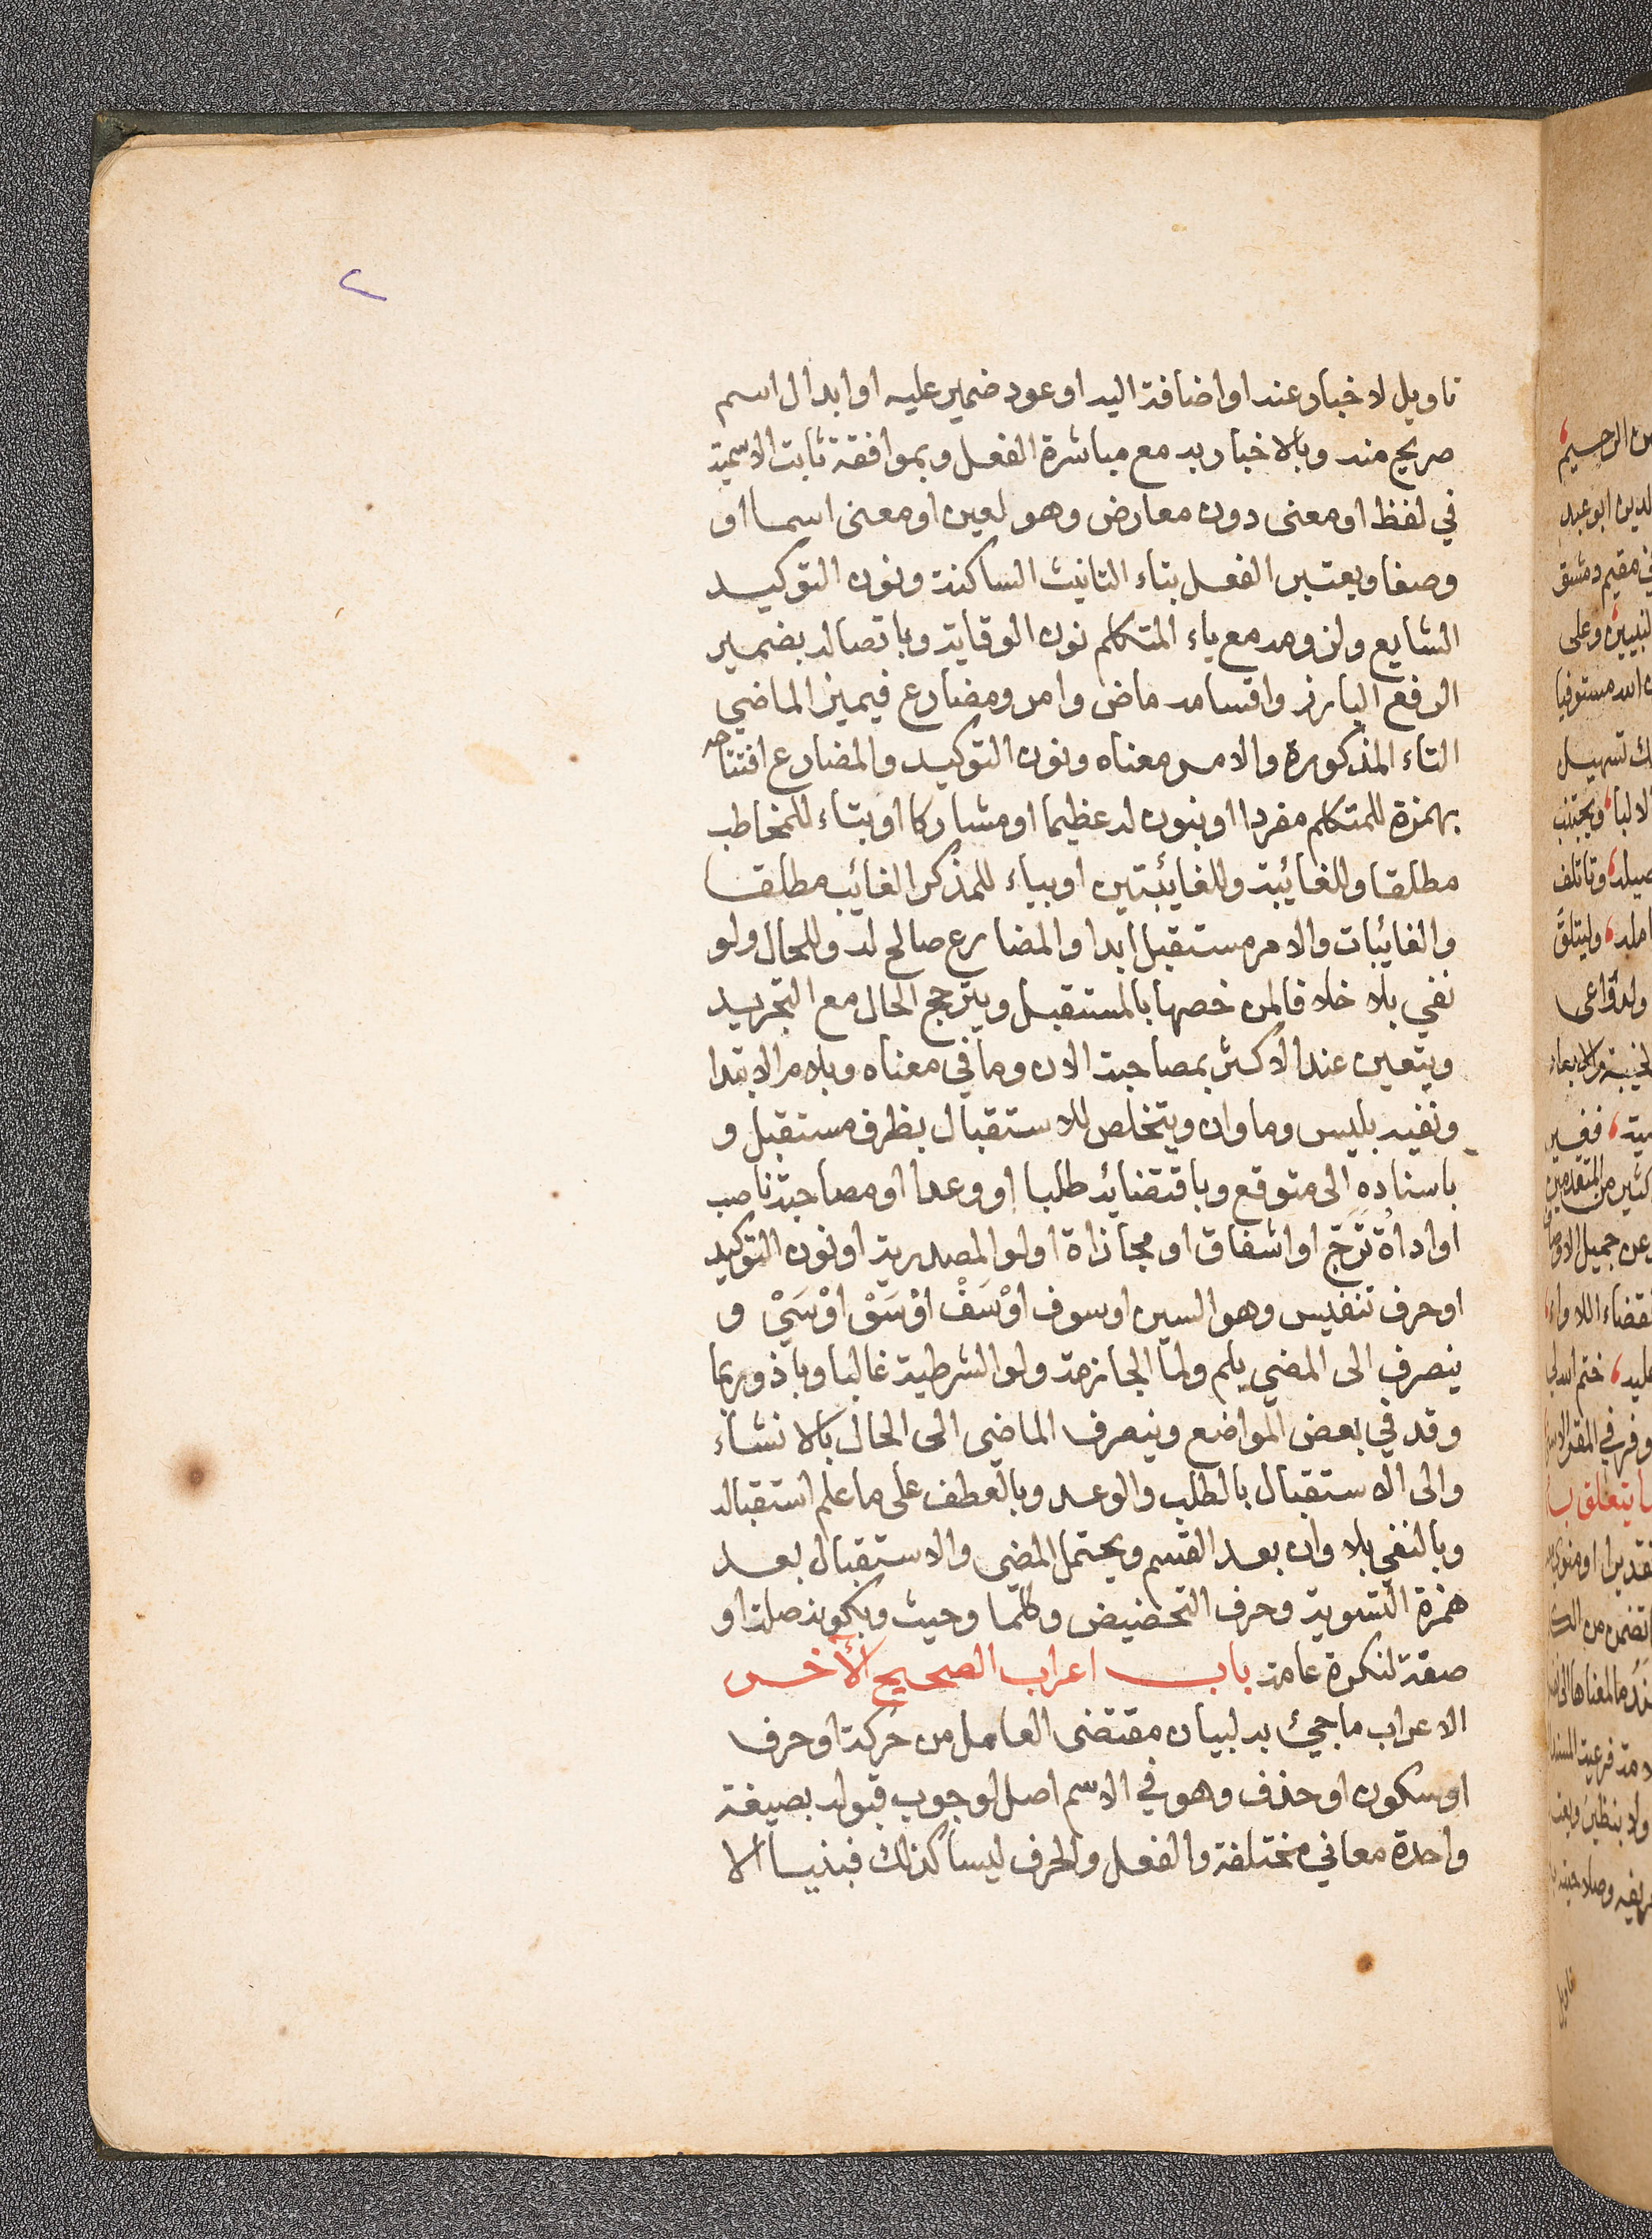 ٢
تاويل لاخبار عنه او اضافة اليه او عود ضمير عليه او ابدال اسم
صريح منه وبالاخبار به مع مباشرة الفعل وبموافقة ثابت الاسمية
في لفظ او معنى دون معارض وهو لعين او معنى اسما او
وصفا ويعتبر الفعل بتاء التانيث الساكنة ونون التوكيد
الشايع ولزومه مع ياء المتكلم نون الوقاية وباتصاله بضمير
الرفع البارز واقسامه ماض وامر ومضارع فيميز الماضي
التاء المذكورة والامر معناه ونون التوكيد والمضارع افتتاحه
بهمزة للمتكلم مفردا او بنون له عظيما او مشاركا او بتاء للمخاطب
مطلقا وللغائبة وللغائبتين او بياء للمذكر الغائب مطلقا
والغائبات والامر مستقبل ابدا والمضارع صالح له وللحال ولو
نفي بلا خلافا لمن خصها بالمستقبل ويترجح الحال مع التجريد
ويتعين عند الاكثر بمصاحبة الان وما في معناه وبلام الابتدا
ونفيه بليس وما وان ويتخلص للاستقبال بظرف مستقبل و
باسناده الى متوقع وباقتضائه طلبا او وعدا او مصاحبة ناصب
او اداة تَرَجّ او اشفاق او مجازاة او لو المصدرية او نون التوكيد
او حرف تنفيس وهو السين او سوف اوْسَفْ اوْسَوْ اوْسَيْ و
ينصرف الى المضي بلم ولما الجازمة ولو الشرطية غالبا وباذ وربما
وقد في بعض المواضع وينصرف الماضي الى الحال بالانشاء
والى الاستقبال بالطلب والوعد وبالعطف على ما علم استقباله
وبالنفي بلا وان بعد القسم ويحتمل المضي والاستقبال بعد
همزة التسوية وحرف التحضيض وكلما وحيث وبكونه صلة او
صفة لنكرة عامة باب اعراب الصحيح الآخر
الاعراب ما جيئ به لبيان مقتضى العامل من حركة او حرف
او سكون او حذف وهو في الاسم اصل لوجوب قبوله بصيغة
واحدة معاني مختلفة والفعل والحرف ليسا كذلك فبنيا الا